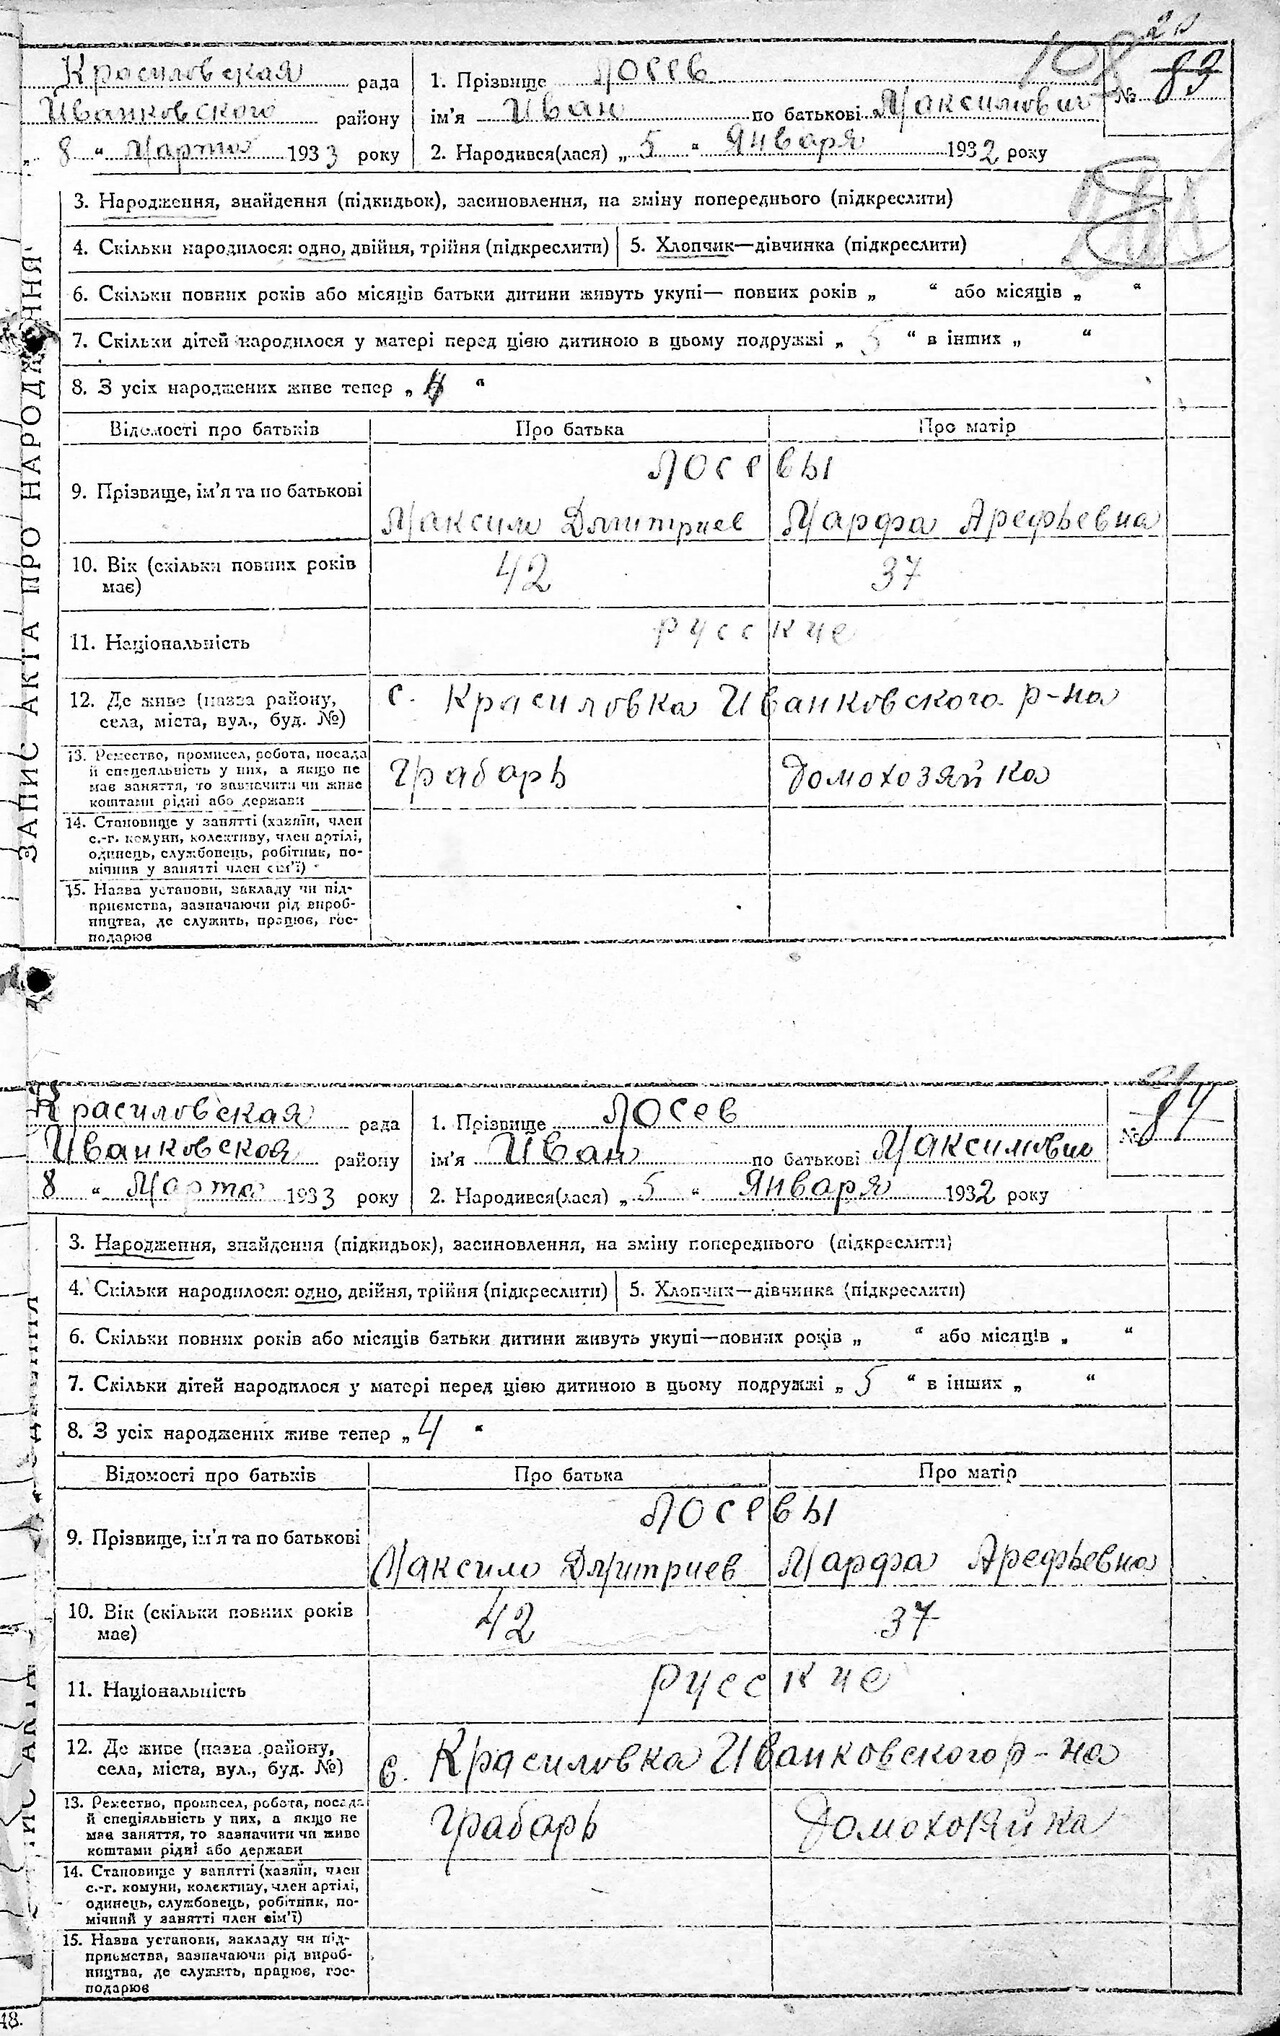 108
83
Красиловская рада
Иванковского району
„ 8 “ Марта 1933 року
1. Прізвище Лосев
ім'я Иван по батькові Максимович
№
2. Народився(лася) „ 5 “ Января 1932 року
3. Народження, знайдення (підкидьок), засиновлення, на зміну попереднього (підкреслити)
4. Скільки народилося: одно, двійня, трійня (підкреслити) 5. Хлопчик—дівчинка (підкреслити)
6. Скільки повних років або місяців батьки дитини живуть укупі— повних років „ “ або місяців „ “
7. Скільки дітей народилося у матері перед цією дитиною в цьому подружжі „ 5 “ в інших „ “
8. З усіх народжених живе тепер „ 4 “
Відомості про батьків Про батька Про матір
Лосевы
9. Прізвище, ім'я та по батькові Максим Дмитриев Марфа Арефьевна
10. Вік (скільки повних років має) 42 37
11. Національність русские
12. Де живе (назва району, села, міста, вул., буд. №) с. Красиловка Иванковского р-на
13. Ремество, промисел, робота, посада
й спеціяльність у них, а якщо не
має заняття, то зазначити чи живе
коштами рідні або держави
Грабарь Домохозяйка
14. Становище у занятті (хазяїн, член
с.-г. комуни, колективу, член артілі,
одинець, службовець, робітник, по-
мічник у занятті член сім'ї)
15. Назва установи, закладу чи під-
приємства, зазначаючи рід вироб-
ництва, де служить, працює, гос-
подарює
ЗАПИС АКТА ПРО НАРОДЖЕННЯ
84
Красиловская рада
Иванковской району
8 “ Марта 1933 року
1. Прізвище Лосев
ім'я Иван по батькові Максимович
№
2. Народився(лася) „ 5 “ Января 1932 року
3. Народження, знайдення (підкидьок), засиновлення, на зміну попереднього (підкреслити)
4. Скільки народилося: одно, двійня, трійня (підкреслити) 5. Хлопчик—дівчинка (підкреслити)
6. Скільки повних років або місяців батьки дитини живуть укупі—повних років „ “ або місяців „ “
7. Скільки дітей народилося у матері перед цією дитиною в цьому подружжі „ 5 “ в інших „ “
8. З усіх народжених живе тепер „ 4 “
Відомості про батьків Про батька Про матір
Лосевы
9. Прізвище, ім'я та по батькові Максим Дмитриев Марфа Арефьевна
10. Вік (скільки повних років має) 42 37
11. Національність русские
12. Де живе (назва району, села, міста, вул., буд. №) с. Красиловка Иванковского р-на
13. Ремество, промисел, робота, посада
й спеціяльність у них, а якщо не
має заняття, то зазначити чи живе
коштами рідні або держави
Грабарь Домохозяйка
14. Становище у занятті (хазяїн, член
с.-г. комуни, колективу, член артілі,
одинець, службовець, робітник, по-
мічний у занятті член сім'ї)
15. Назва установи, закладу чи під-
приємства, зазначаючи рід вироб-
ництва, де служить, працює, гос-
подарює
48.